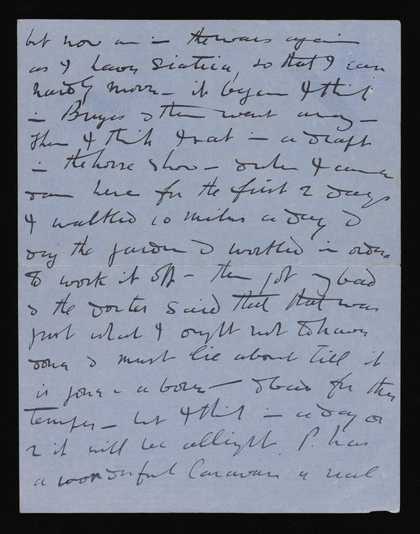 but now am in the wars again
as I have Sciatica, so that I can
hardly move - it began I think
in Bruges & then went away -
Then I think I sat in a draft
in the horse show - when I came
down here for the first 2 days
I walked 10 miles a day &
dug the garden & worked in order
to work it off - then got my bad
& the doctor said that that was
just what I ought not to have
done & must lie about till it
is gone - a bore - & bad for the
temper - but I think in a day or
2 it will be allright. P. has
a wonderful Caravan a real